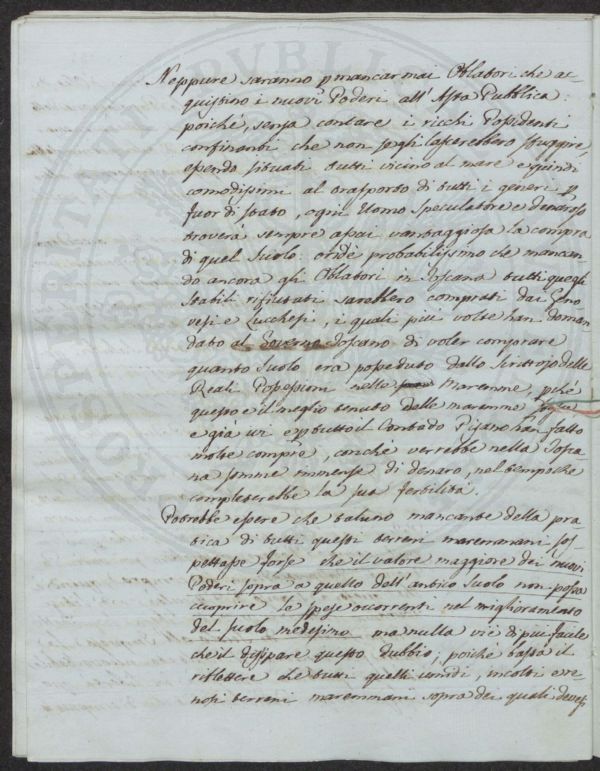 Neppure saranno p mancar mai Oblatori che ac-
quistino i nuovi Poderi all'Asta Pubblica:
poiché, senza contare i ricchi Possidenti
confinanti che non segli lascerebbero sfuggire,
essendo situati tutti vicino al mare e quindi
comodissimi al trasporto di tutti i generi p
fuor di stato, ogni Uomo speculatore e denaroso
troverà sempre assai vantaggiosa la compra
di quel Suolo: ond'è probabilissimo che mancan-
do ancora gli Oblatori in Toscana tutti quegli
stabili rifiutati sarebbero comprati dai Geno
vesi e Lucchesi, i quali più volte han doman
dato al Governo Toscano di voler comprare
quanto Suolo era posseduto dallo Scrittojo delle
Reali Possessioni nelle Maremme, pché
questo è il meglio tenuto delle maremme
e già ivi e p tutto il Contado Pisano han fatto
molte compre, cosiché verrebbe nella Tosca
na somme immense di denaro, nel tempo che
completerebbe la sua fertilità.
Potrebbe essere che taluno mancante della pra
tica di tutti questi terreni maremmani sos-
pettasse forse che il valore maggiore dei nuovi
Poderi sopra a quello dell'antico Suolo non possa
cuoprire le spese occorrenti nel miglioramento
del suolo medesimo ma nulla vi è di piu facile
che il dissipare questo dubbio; poiché basta il
riflettere che tutti quelli umidi, incolti e ve-
nosi terreni maremmani sopra dei quali devesi